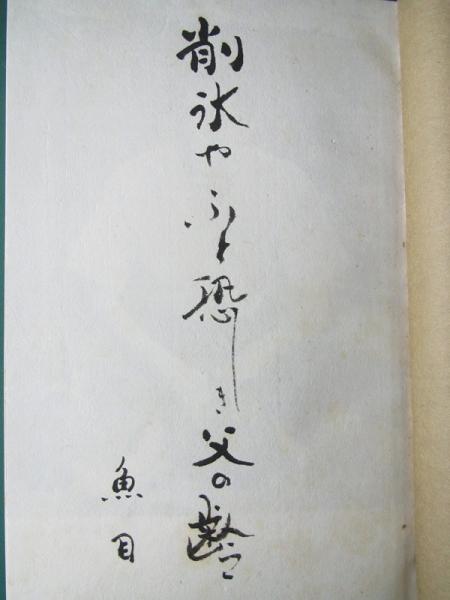 削氷やふと恐しき父の齢
魚目